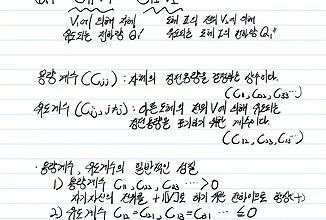 V₁에 의해 자체 도체 I의 전위 V₂에 의해
유도되는 전하량 Q₁' 유도되는 도체 I의 전하량 Q₁''
용량계수(Cjj) : 자체의 정전용량을 결정하는 상수이다.
(C₁₁, C₂₂, C₃₃…)
유도계수(Cij, i≠j) : 다른 도체의 전위 V에 의해 유도되는
정전용량을 표기하기 위한 계수이다.
(C₁₂, C₂₃, C₃₁…)
· 용량계수, 유도계수의 일반적인 성질
1) 용량계수 C₁₁, C₂₂, C₃₃ … > 0
자기자신의 전위를 +1[V]로 하기 위한 전하이므로 항상(+)
2) 유도계수 C₁₂ = C₂₁, C₁₃ = C₃₁ … ≤ 0